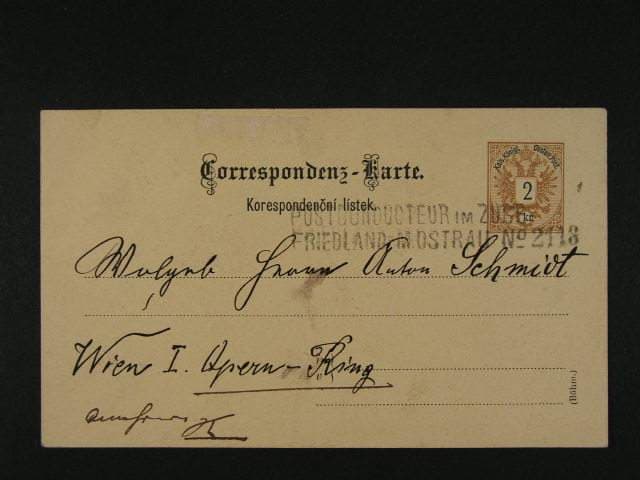 Correspondenz-Karte.
Korespondenční lístek.
2
kr.
POSTCONDUCTEUR IM ZUGE
FRIEDLAND-M.OSTRAU Nº 2113
Herrn Anton Schmidt
Wien I. Opern-Ring
(Böhm.)